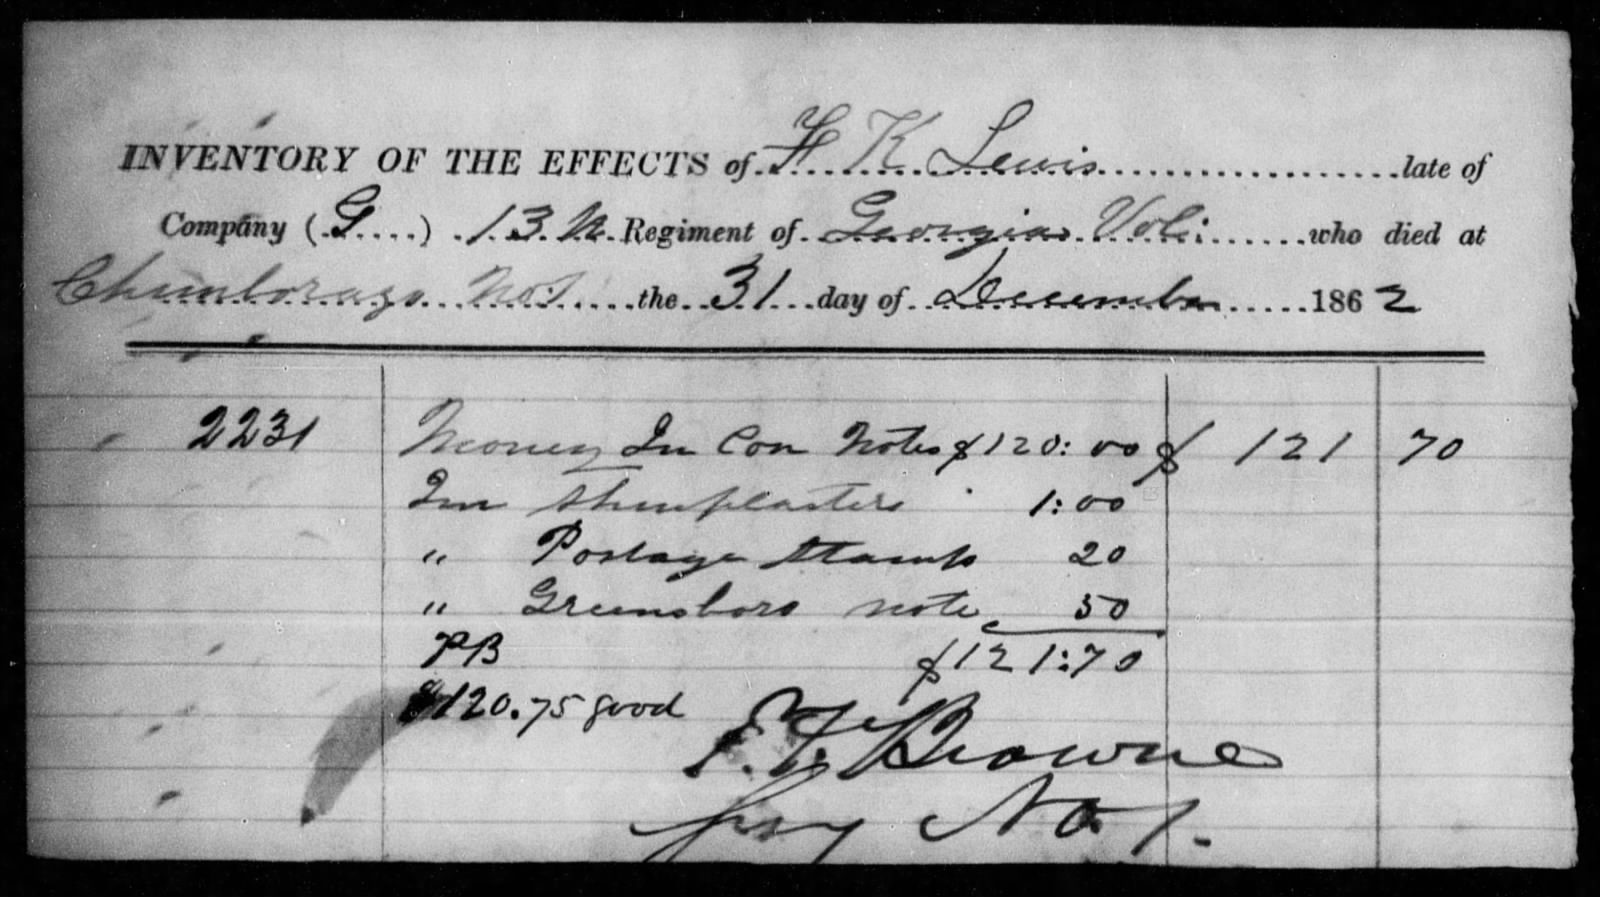 INVENTORY OF THE EFFECTS of H K Lewis late of
Company (G) 13th Regiment of Georgia Vols. who died at
Chimborazo No. 1 the 31 day of December 1862
2231 Money In Con Notes $120:00 $ 121 70
Im Shinplasters 1:00
" Postage Stamps 20
" Greensboro note 50
PB $121:70
$120.75 good
E. F. Browne
No. 1.